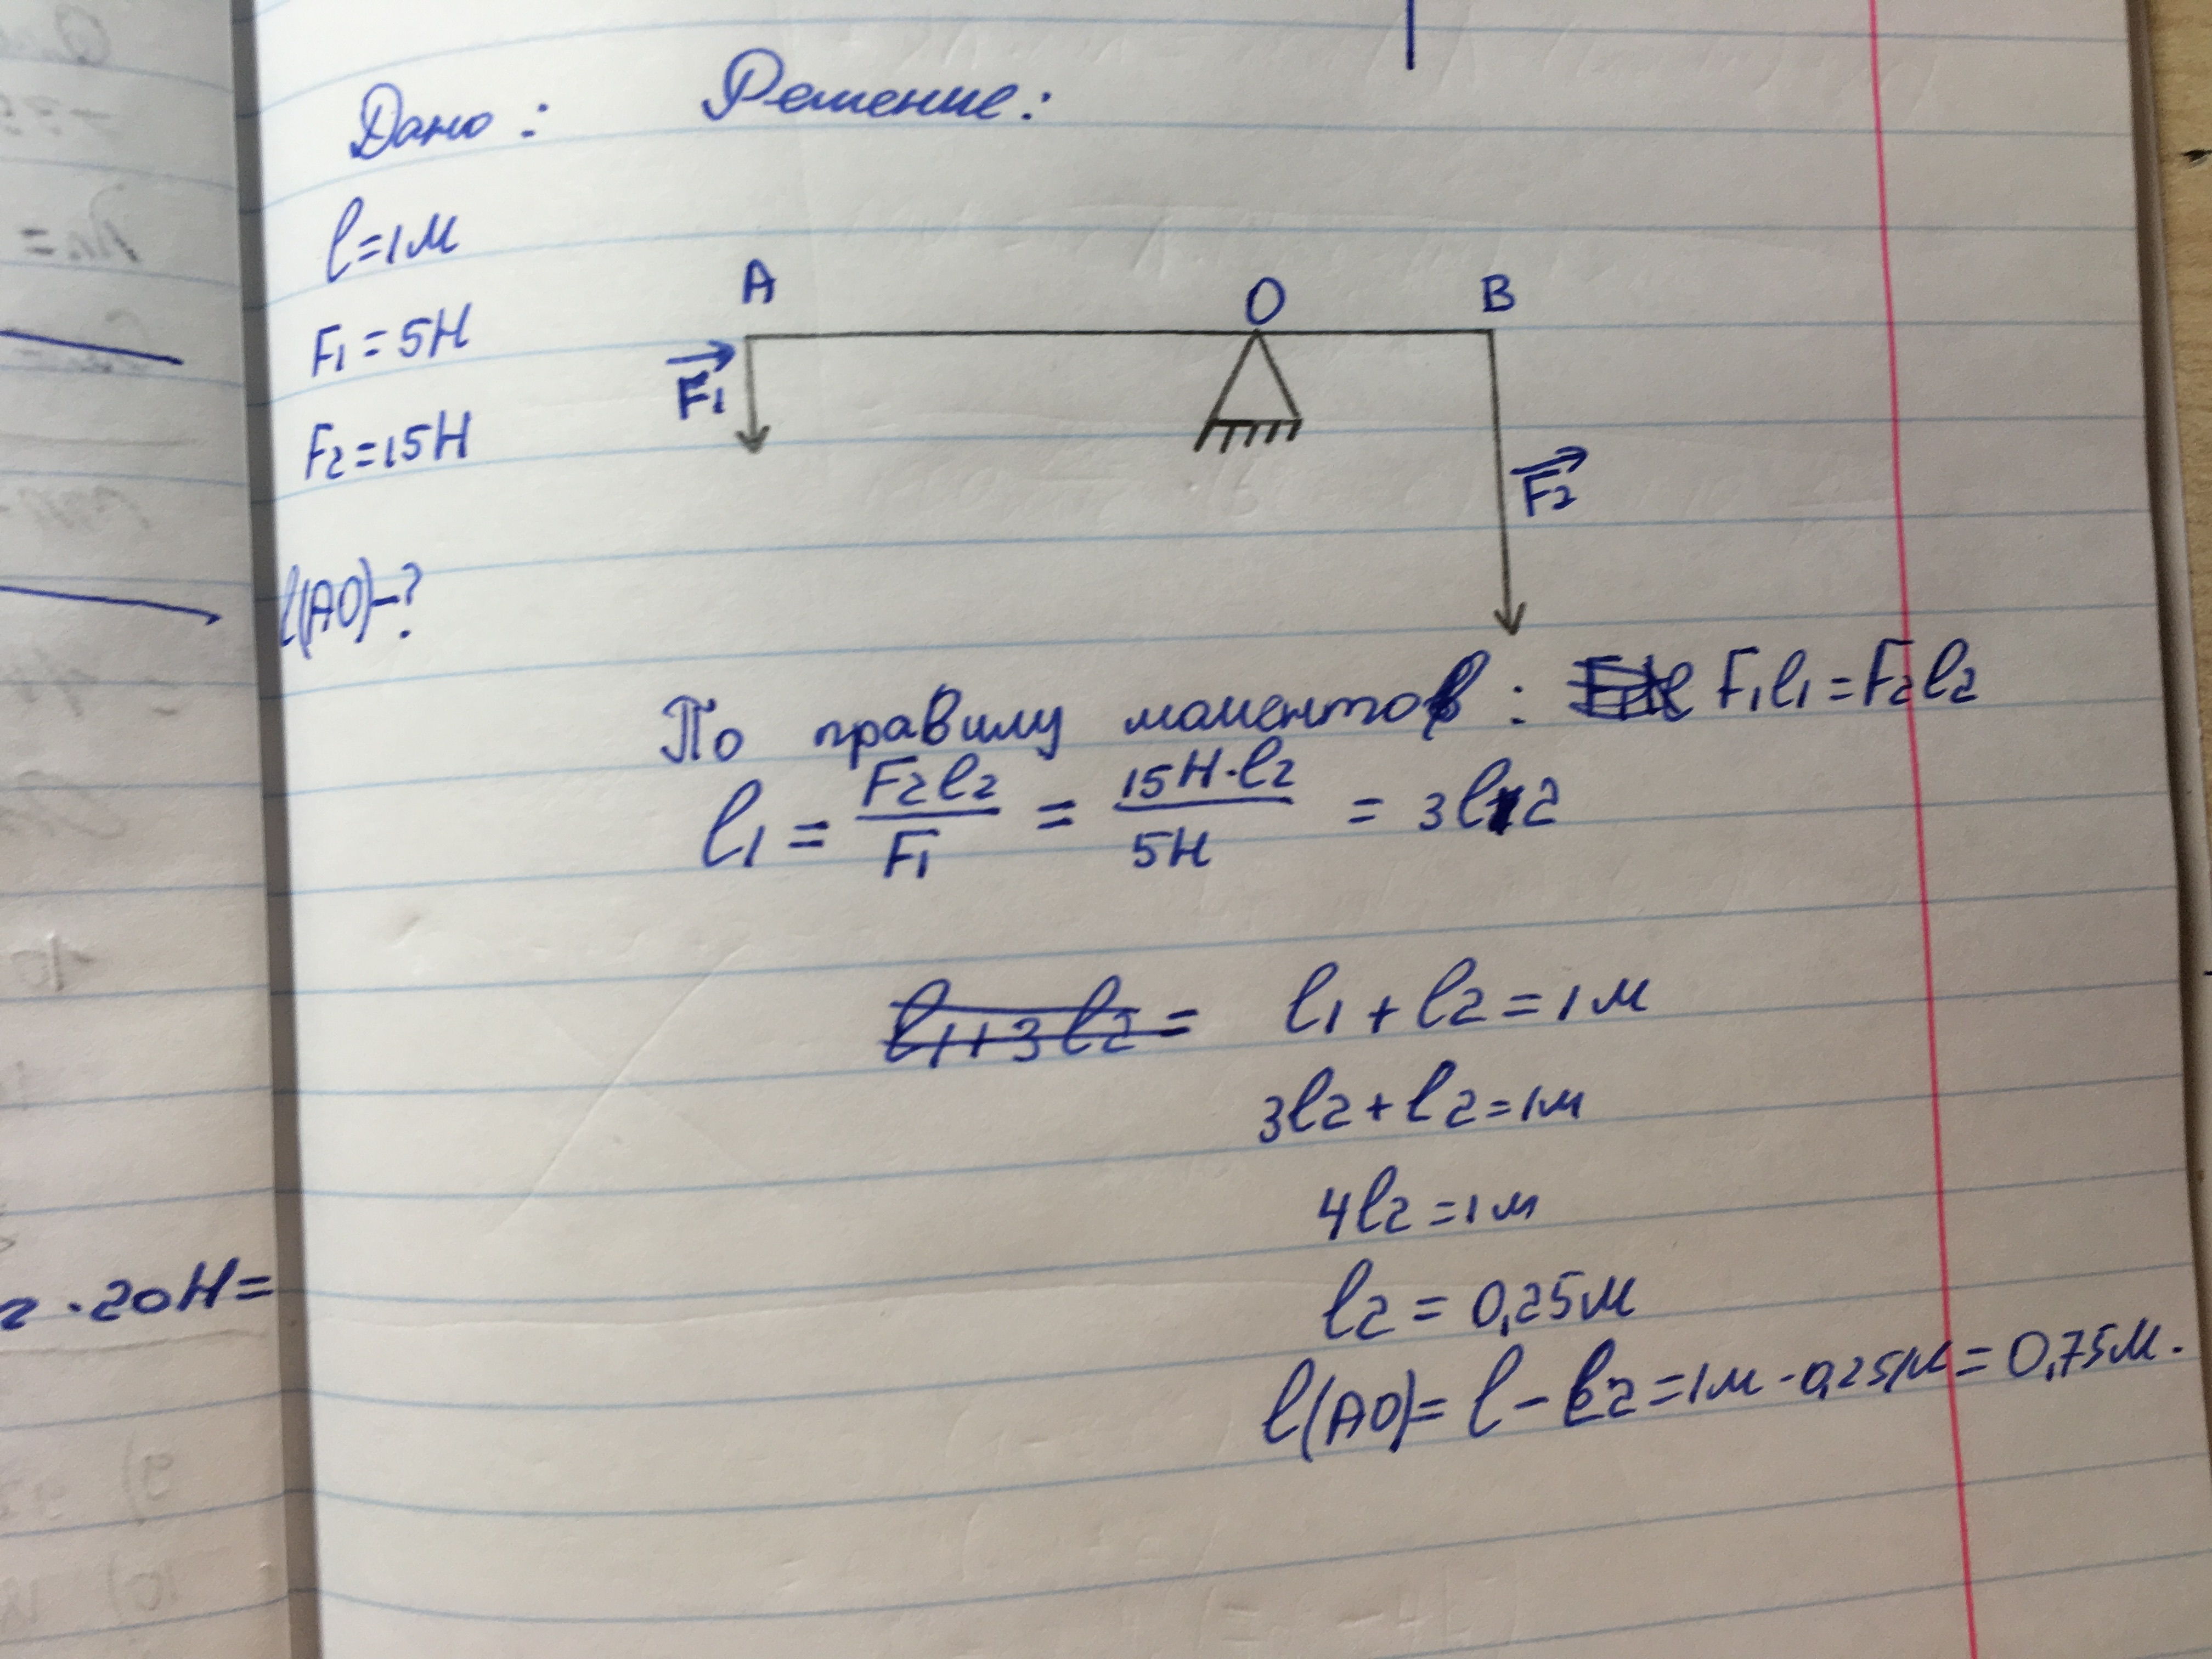 Дано: Решение:
l=1м
F1=5Н
F2=15Н
l(AO)-?
A O B
F1
F2
По правилу моментов: F1l1=F2l2
l1 = F2l2/F1 = 15Н·l2/5Н = 3l2
l1+3l2= l1+l2=1м
3l2+l2=1м
4l2=1м
l2=0,25м
l(AO)=l-l2=1м-0,25м=0,75м.
·20Н=